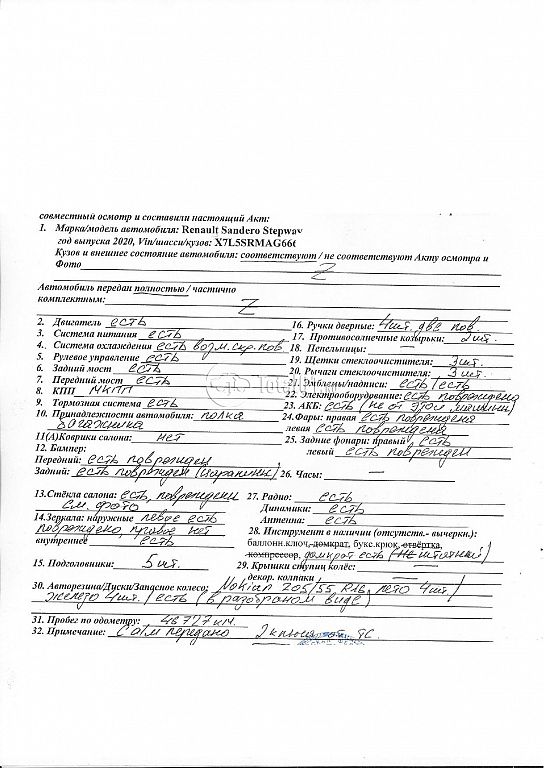 совместный осмотр и составили настоящий Акт:
1. Марка/модель автомобиля: Renault Sandero Stepway
год выпуска 2020, Vin/шасси/кузов: X7L5SRMAG66
Кузов и внешнее состояние автомобиля: соответствуют / не соответствуют Акту осмотра и
Фото Z
Автомобиль передан полностью / частично
комплектным: Z
2. Двигатель есть
3. Система питания есть
4. Система охлаждения есть возм. скр. пов
5. Рулевое управление есть
6. Задний мост есть
7. Передний мост есть
8. КПП МКПП
9. Тормозная система есть
10. Принадлежности автомобиля: полка
багажника
11(А)Коврики салона: нет
12. Бампер:
Передний: есть поврежден
Задний: есть поврежден (царапины)
13.Стёкла салона: есть, повреждены
см. фото
14.Зеркала: наружные левое есть
повреждено, правое нет
внутреннее есть
15. Подголовники: 5 шт.
16. Ручки дверные: 4шт. две пов.
17. Противосолнечные козырьки: 2шт.
18. Пепельницы: —
19. Щетки стеклоочистителя: 3шт.
20. Рычаги стеклоочистителя: 3шт.
21. Эмблемы/надписи: есть/есть
22. Электрооборудование: есть повреждена
23. АКБ: есть (не от этой машины)
24.Фары: правая есть повреждена
левая есть повреждена
25. Задние фонари: правый есть
левый есть поврежден
26. Часы: —
27. Радио: есть
Динамики: есть
Антенна: есть
28. Инструмент в наличии (отсутств.- вычерки.):
баллонн.ключ, домкрат, букс.крюк, отвёртка,
компрессор, домкрат есть (не штатный)
29. Крышки ступиц колёс: —
декор. колпаки —
30. Авторезина/Диски/Запасное колесо: Nokian 205/55 R16 лето 4шт/
железо 4шт./ есть (в разобраном виде)
31. Пробег по одометру: 46727 км.
32. Примечание: С а/м передано 2 ключа ТС.